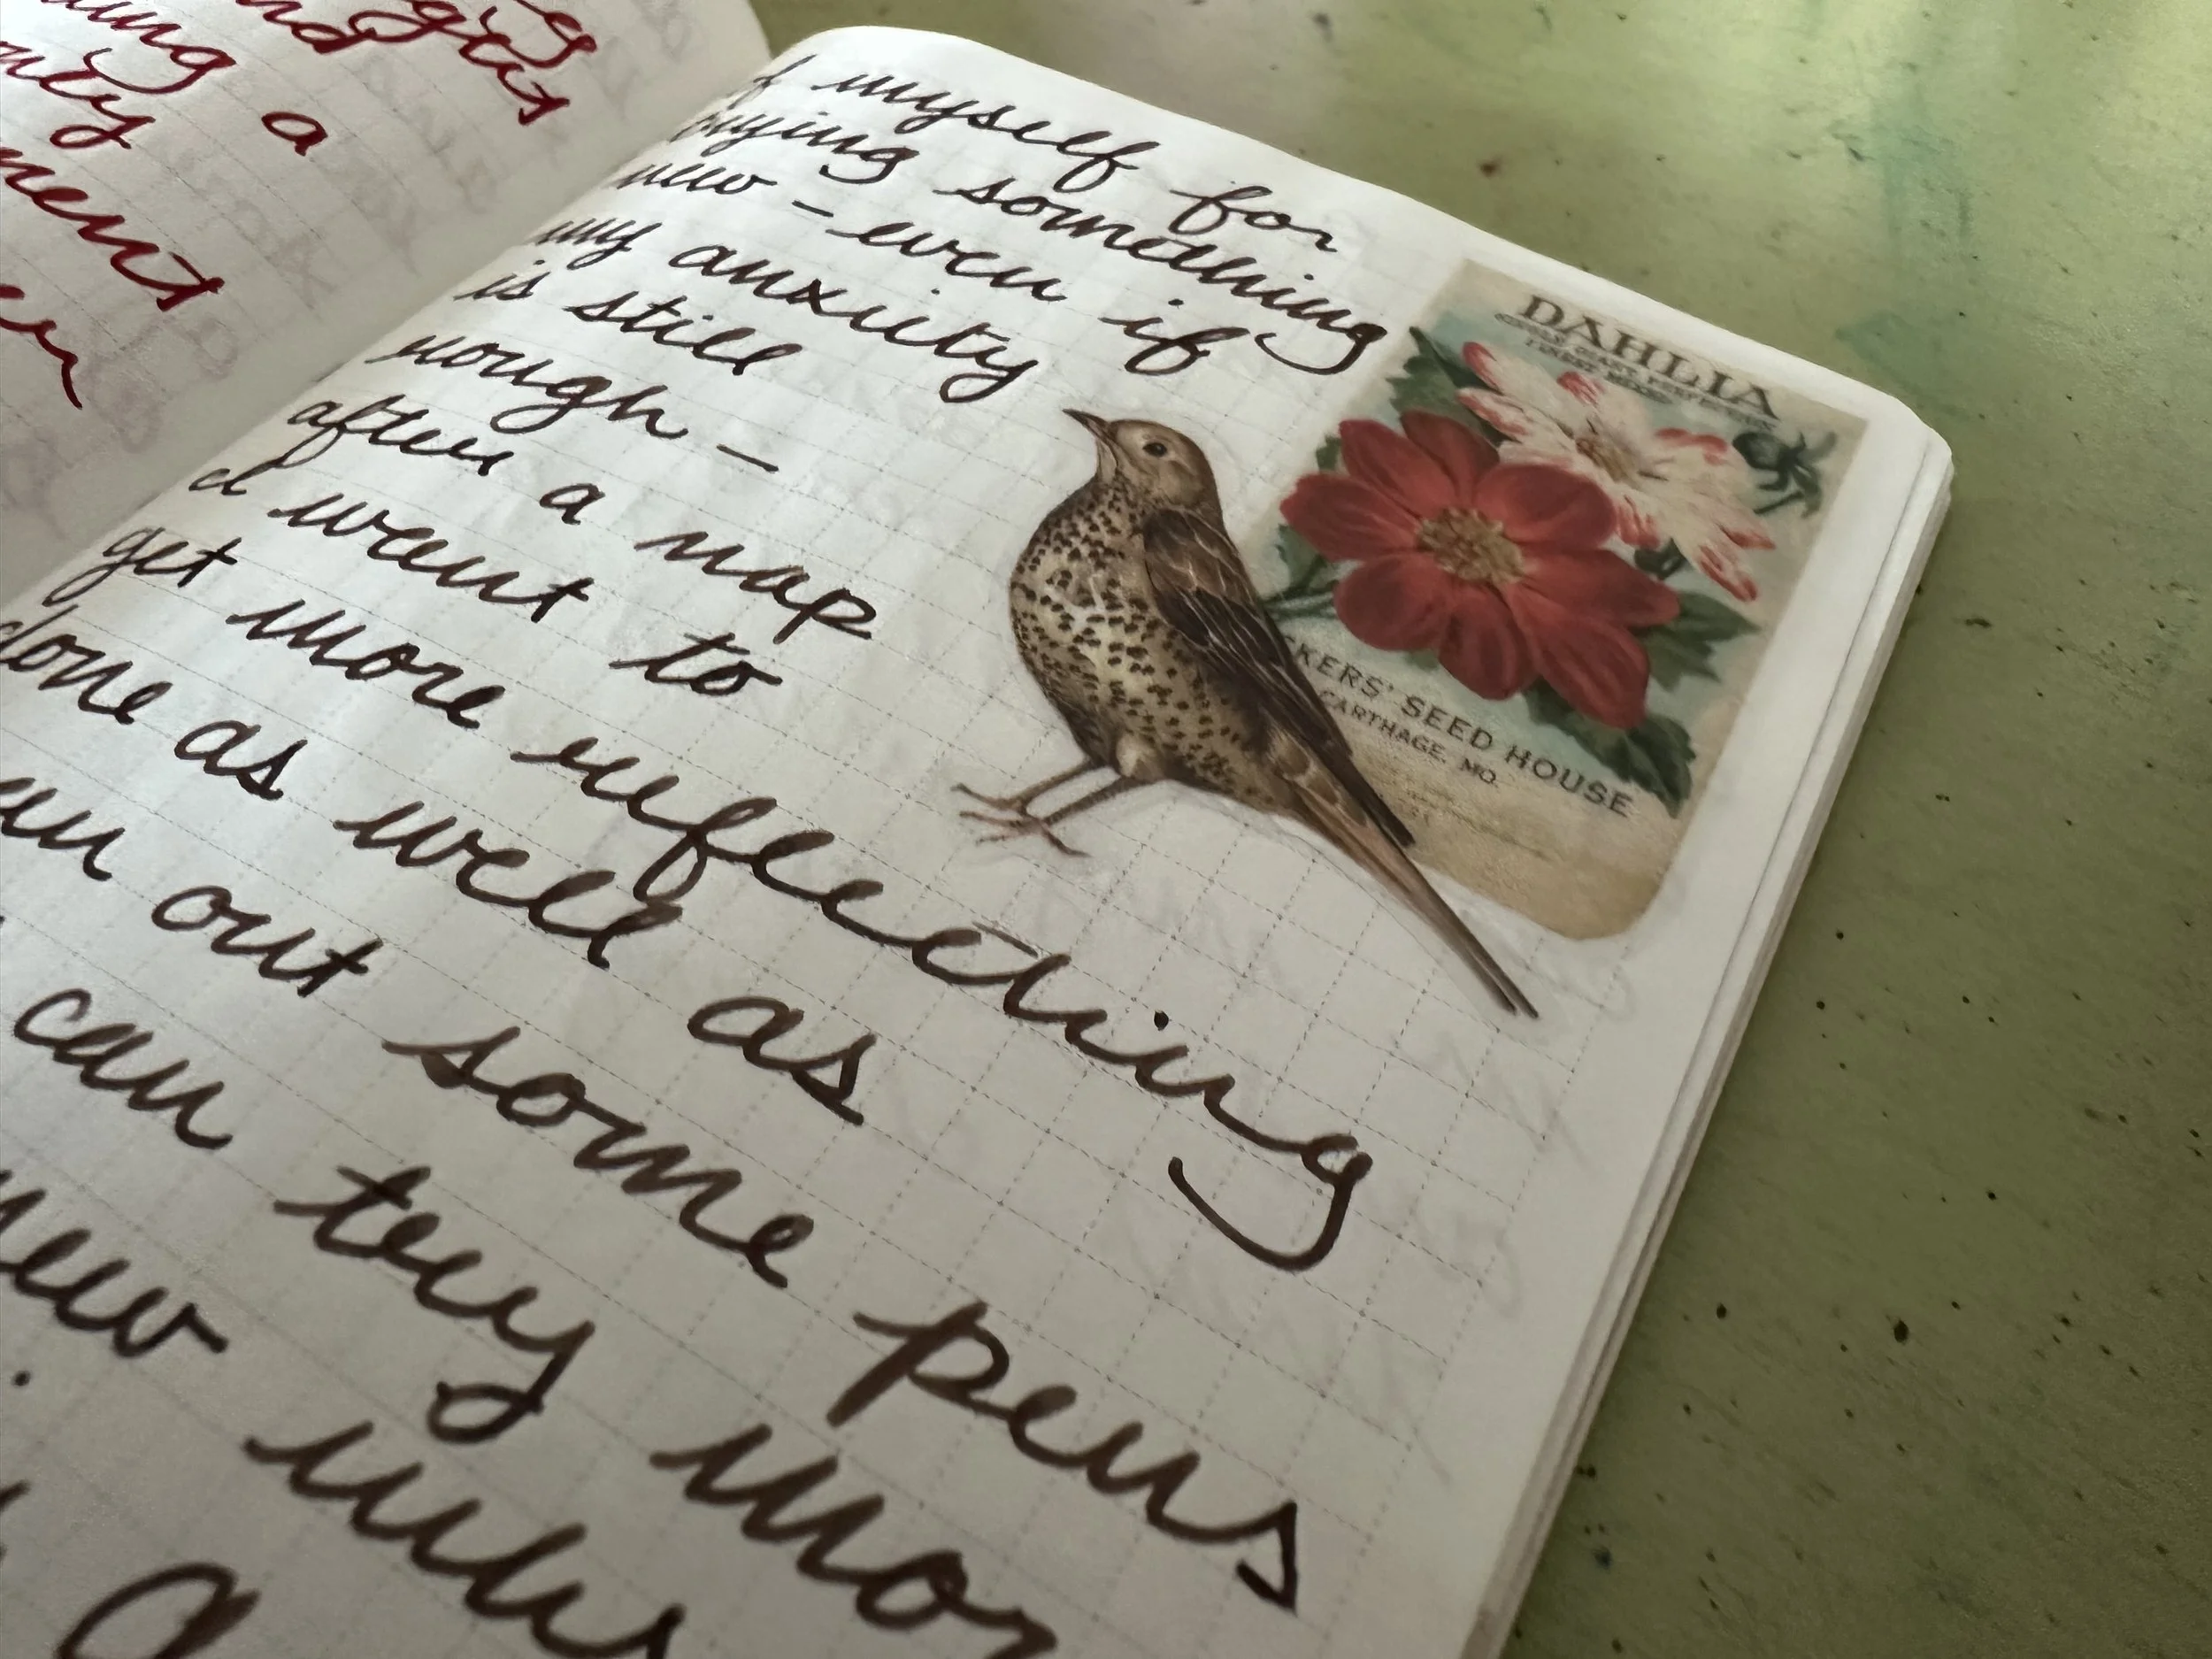 a
of myself for
trying something
new - even if
my anxiety
is still
rough -
after a nap
I want to
get more reflecting
done as well as
out some pens
can try mor
new inks
DAHLIA
KERS' SEED HOUSE
CARTHAGE, MO.